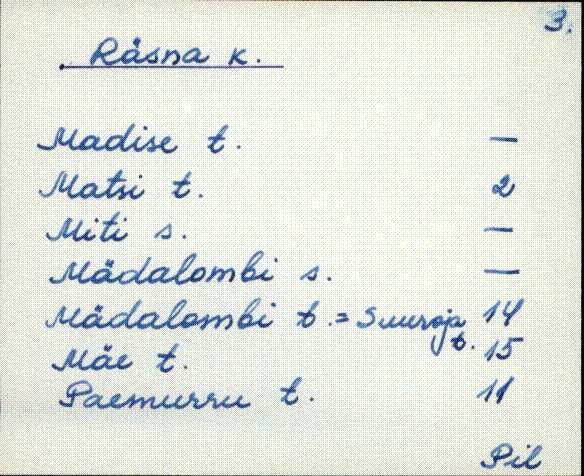 3.
Räsna k.
Madise t. —
Matsi t. 2
Miti s. —
Mädalombi s. —
Mädalombi t. = Suuroja t. 14
Mäe t. 15
Paemurru t. 11
Pil